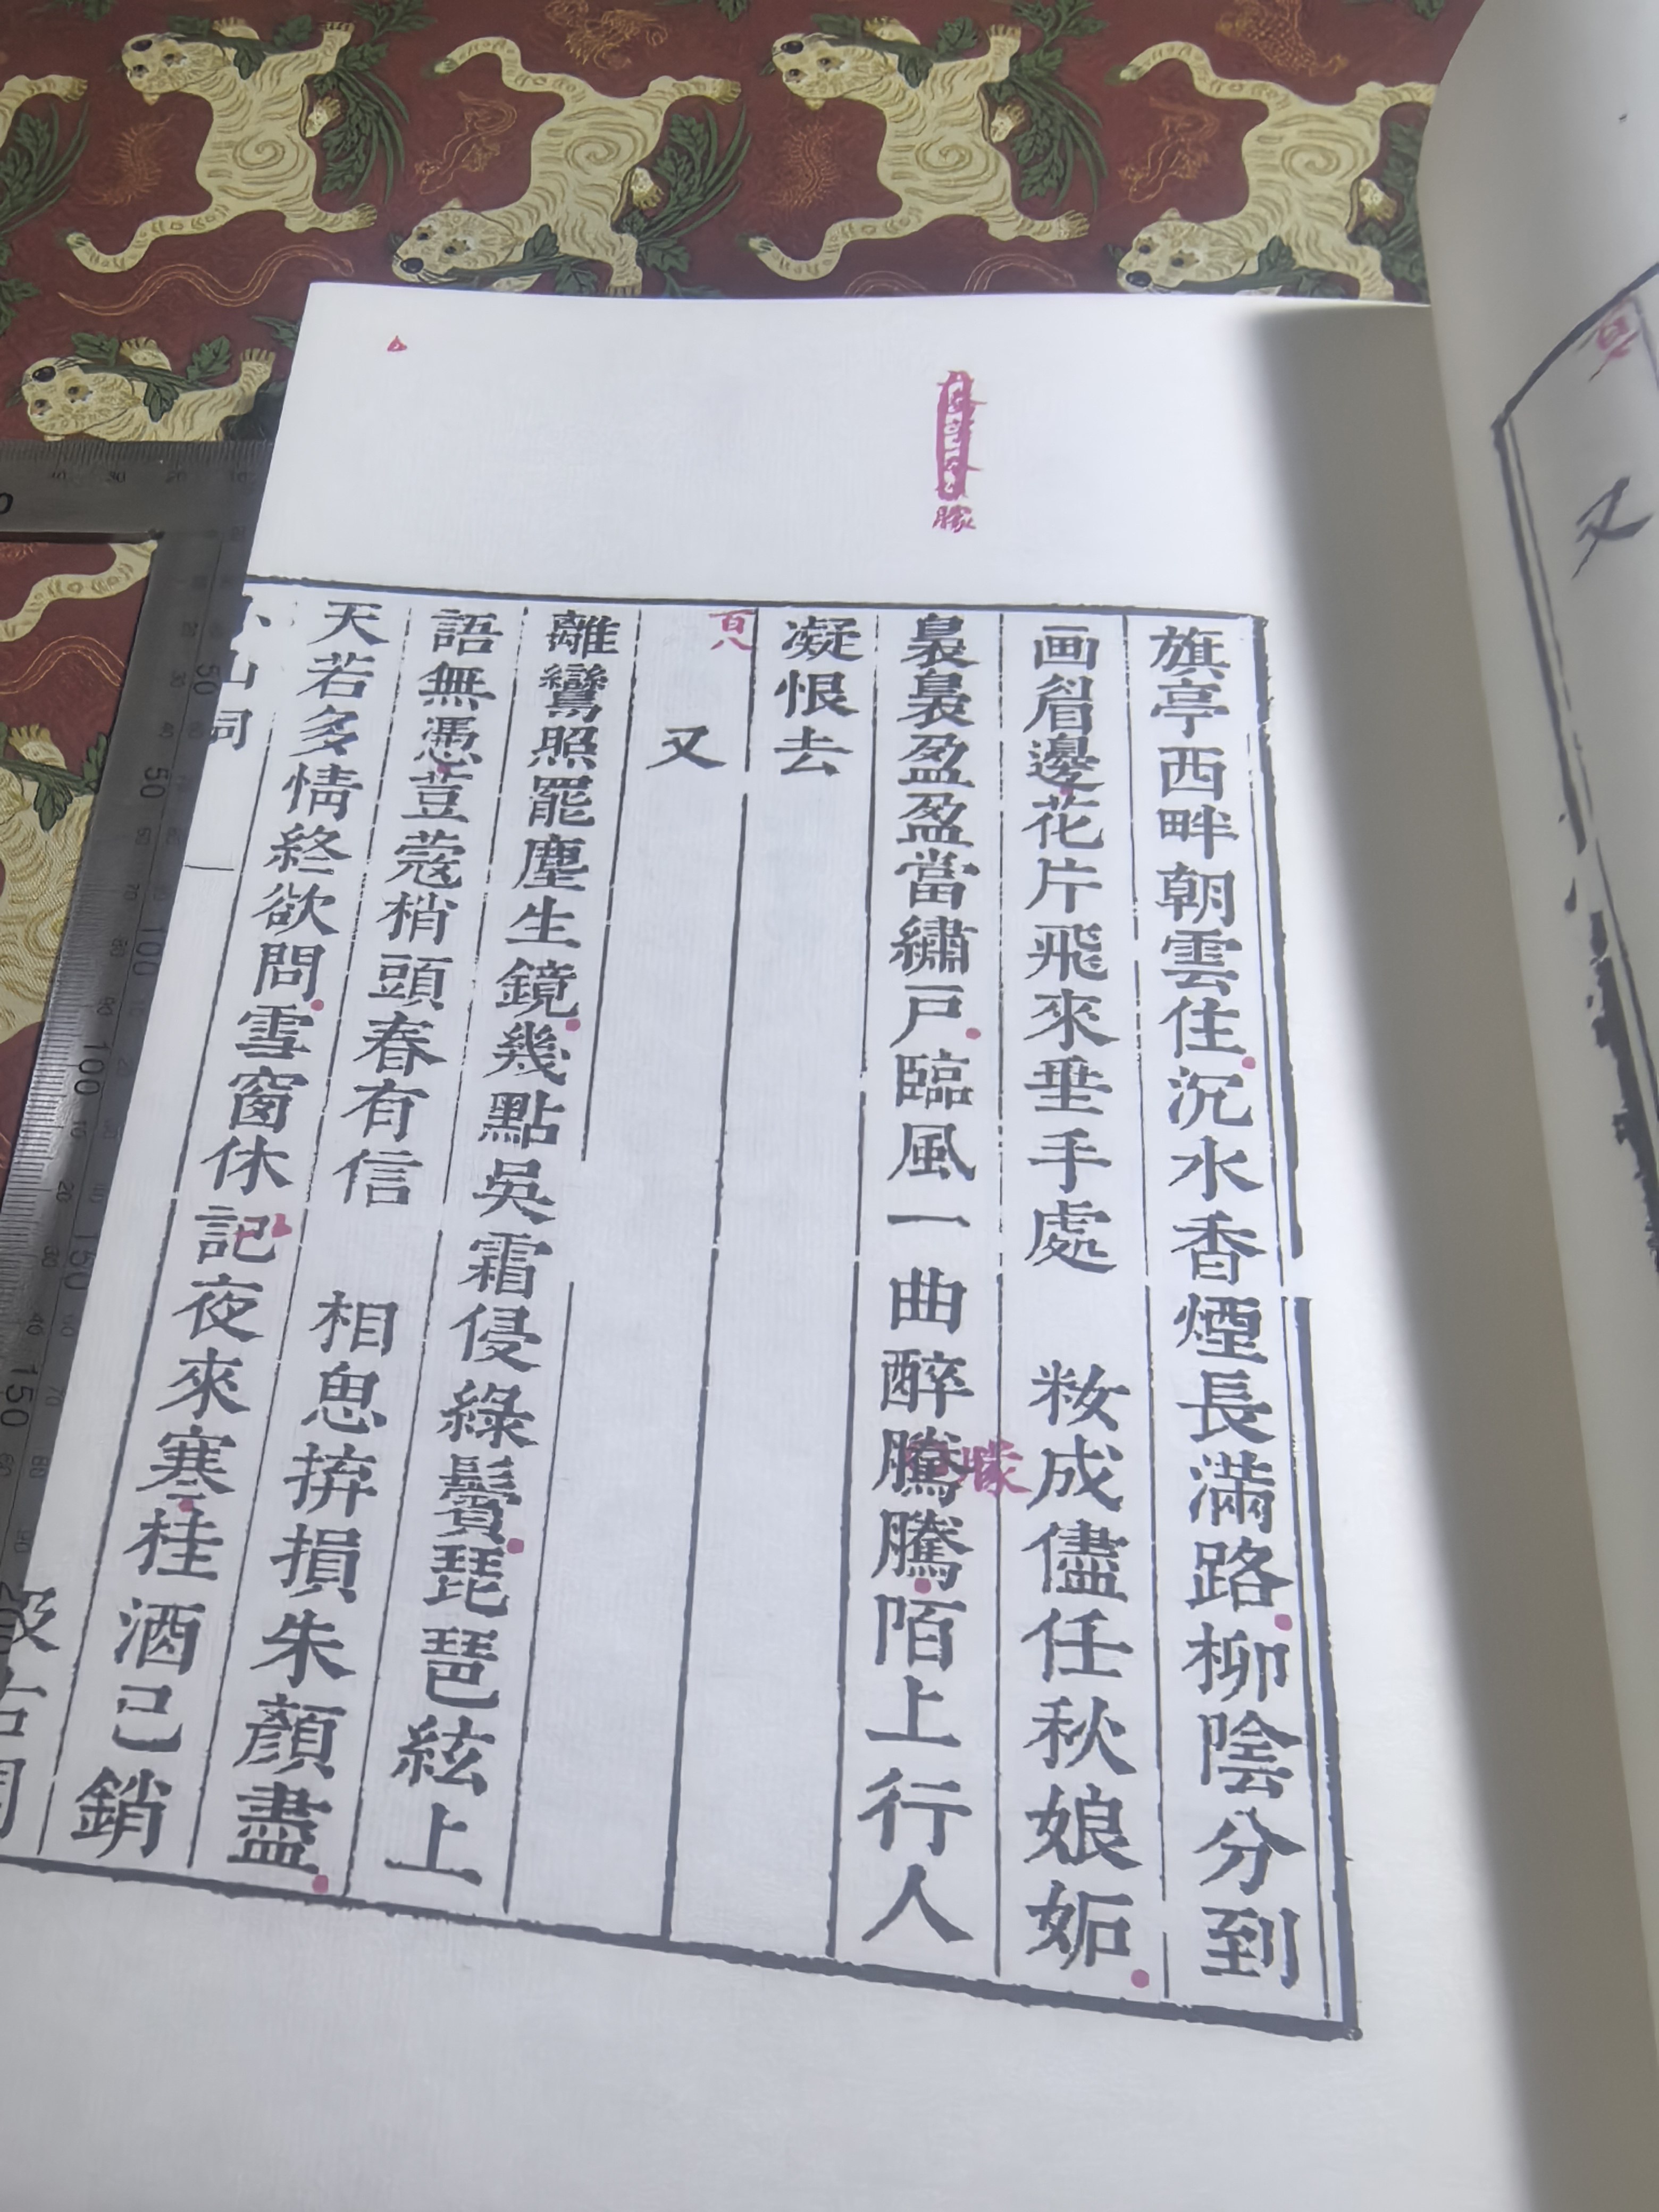 旗亭西畔朝雲住沉水香煙長滿路柳陰分到
画眉邊花片飛來垂手處 籹成儘任秋娘妬
裊裊盈盈當繡戸臨風一曲醉騰騰陌上行人
凝恨去
百八
又
離鸞照罷塵生鏡幾點吳霜侵綠鬢琵琶絃上
語無憑荳蔻梢頭春有信 相思拚損朱顏盡
天若多情終欲問雪窗休記夜來寒桂酒已銷
小山詞
又